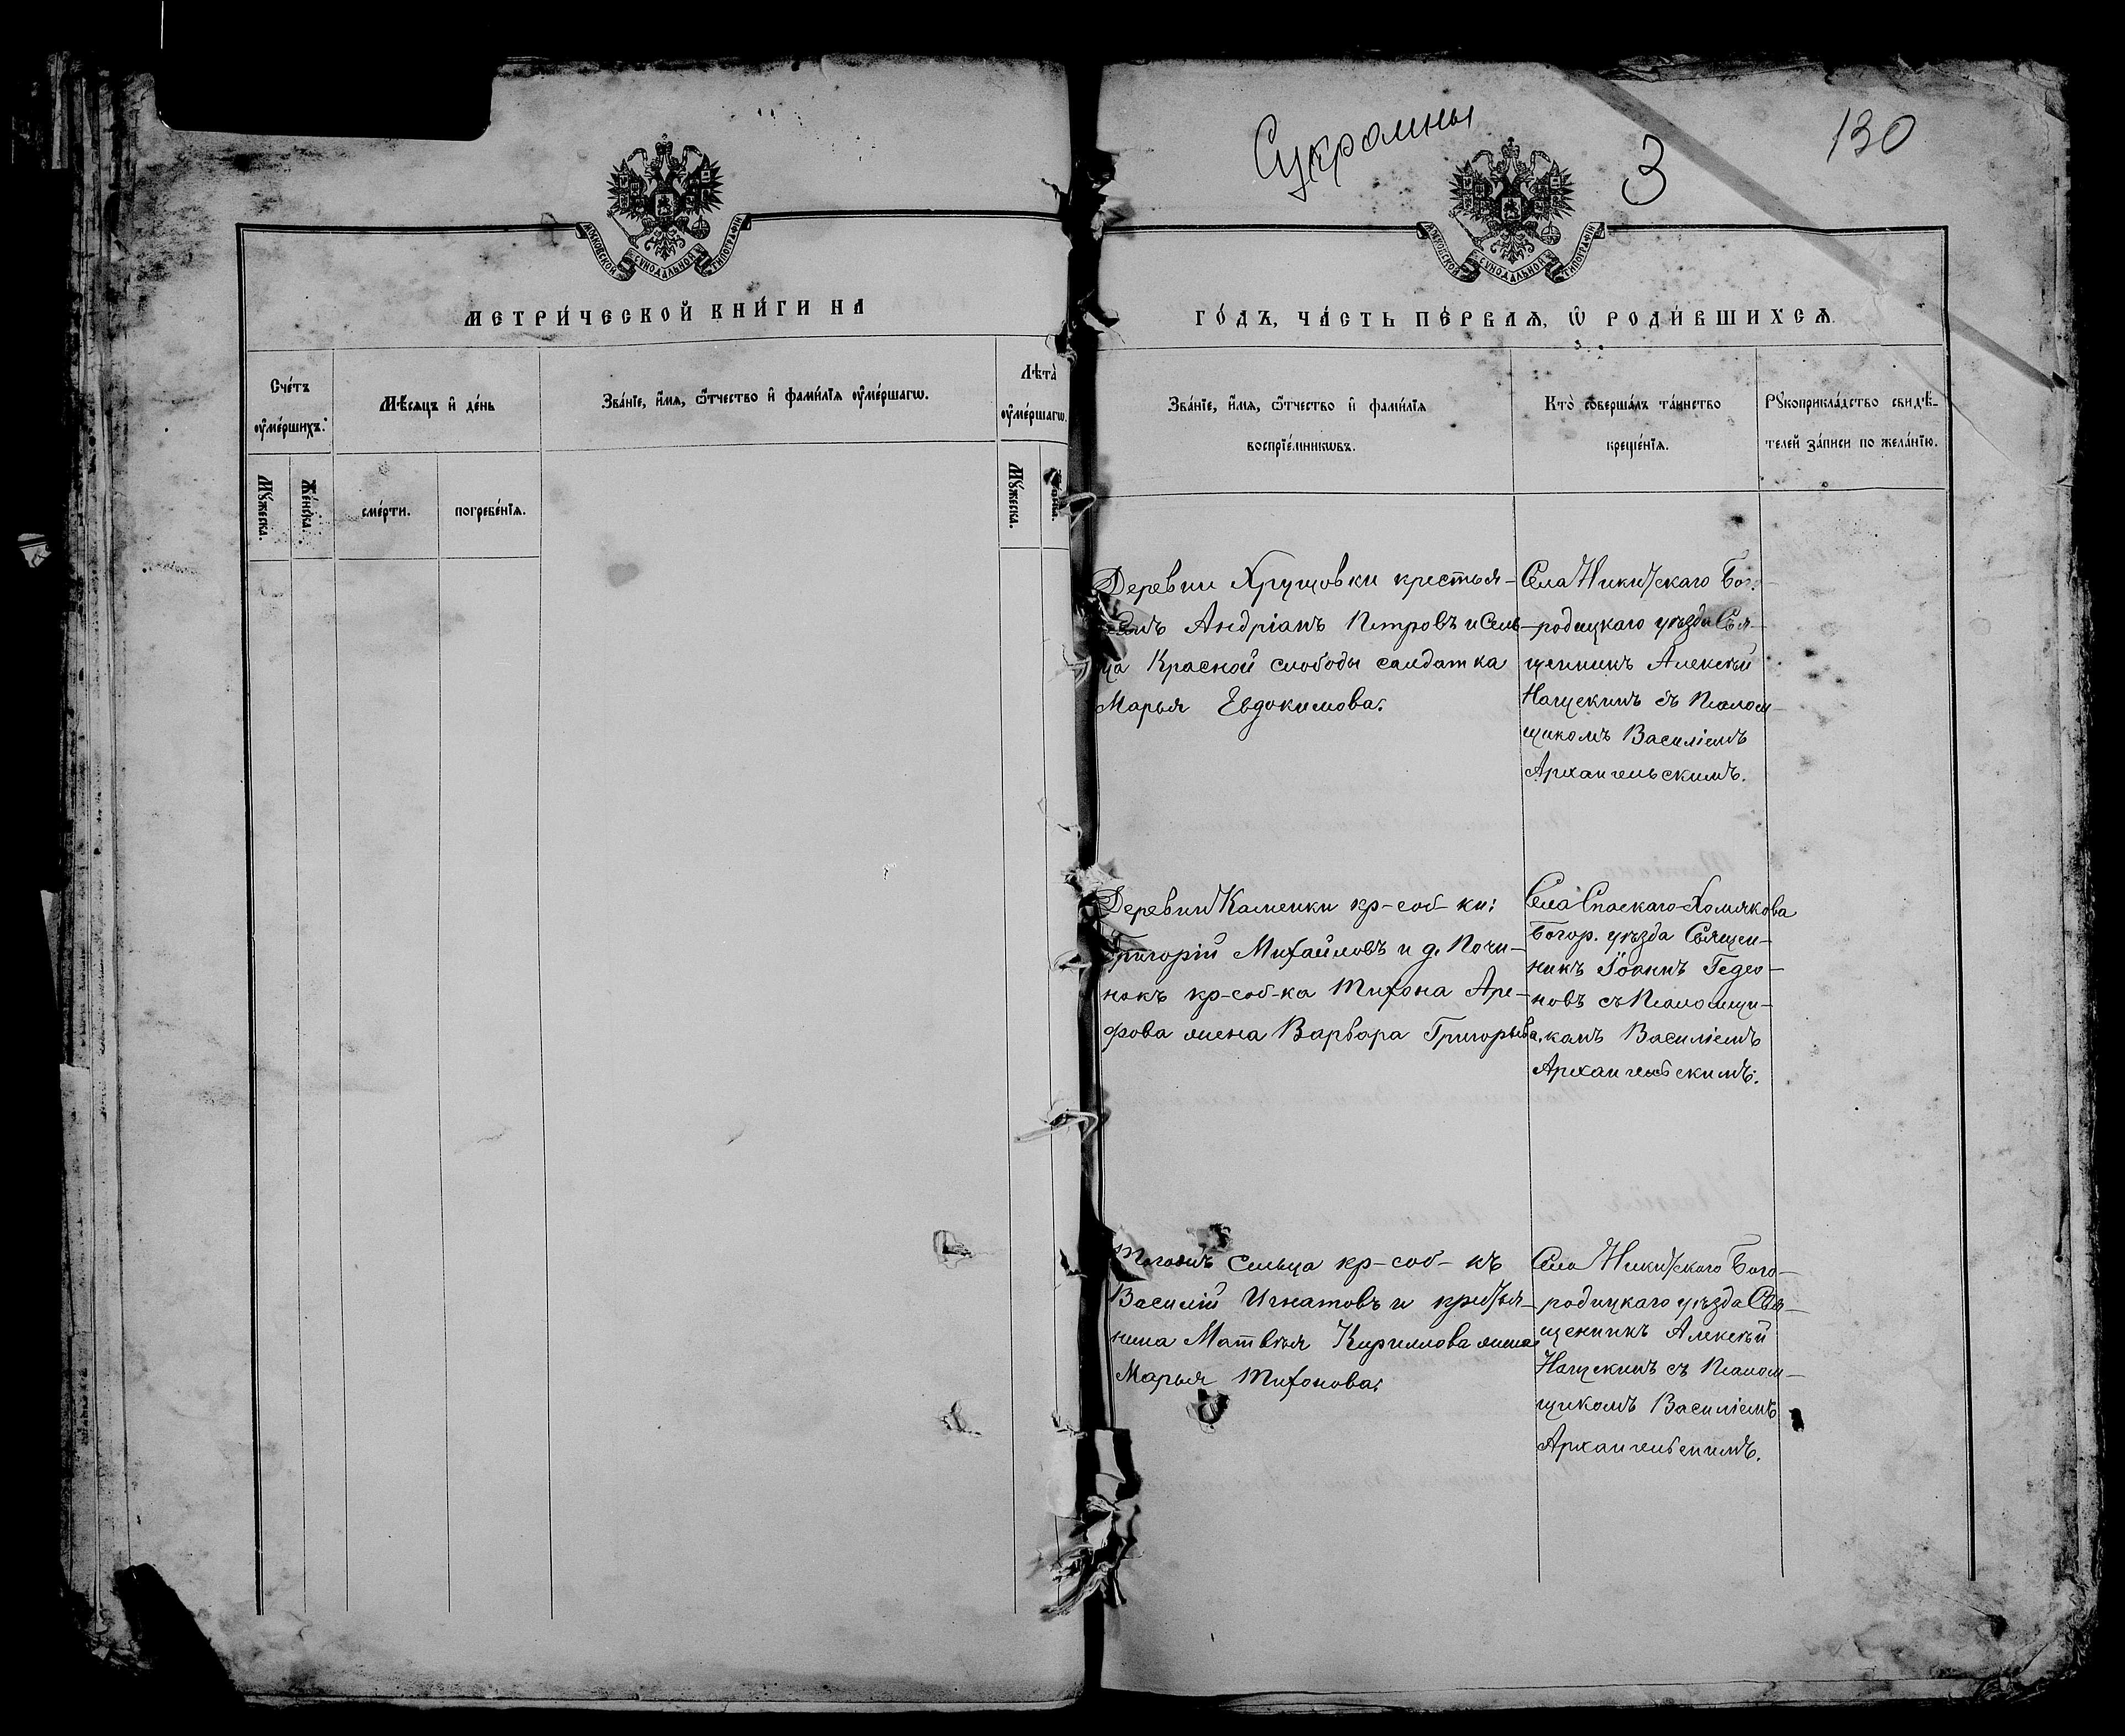 Сукромны
3
130
МОСКОВСКОЙ СѴНОДАЛЬНОЙ ТИПОГРАФІИ
МЕТРИ́ЧЕСКОЙ КНИ́ГИ НА
Сче́тъ ᲂу҆ме́ршихъ.
Мѣ́сяцъ и҆ де́нь
Зва́нїе, и҆́мя, ѻ҆́тчество и҆ фами́лїя ᲂу҆ме́ршагѡ.
Лѣта̀ ᲂу҆ме́ршагѡ.
Мꙋ́жеска.
Же́нска.
сме́рти.
погребе́нїѧ.
Мꙋ́жеска.
МОСКОВСКОЙ СѴНОДАЛЬНОЙ ТИПОГРАФІИ
ГО́ДЪ, ЧА́СТЬ ПЕ́РВАѦ, Ѡ҆ РОДИ́ВШИХСѦ.
Зва́нїе, и҆́мя, ѻ҆́тчество и҆ фами́лїя
воспрїе́мникѡвъ.
Кто̀ соверша́лъ та́инство
креще́нїя.
Рꙋкоприкла́дство свидѣ́-
телей за́писи по жела́нїю.
Деревни Хрущовки крестья-
Андріанъ Петровъ и сель
ца Красной слободы салдатка
Марья Евдокимова.
Села Никитскаго Бого-
родицкаго уѣзда Свя-
щенникъ Алексѣй
Нащекинъ съ Псалом-
щикомъ Василіемъ
Архангельскимъ.
Деревни Каменки кр-соб-ки:
Григорій Михайловъ и д. Почи-
нокъ кр-соб-ка Тихона Аре-
фова жена Варвара Григорьева.
Села Спаскаго-Хомякова
Богор. уѣзда Священ-
никъ Іоаннъ Гедео-
новъ съ Псаломщи-
камъ Василіемъ
Архангельскимъ.
сельца кр-соб-къ
Василій Игнатовъ и крестья-
нина Матвѣя Кириллова жена
Марья Тихонова.
Села Никитскаго Бого-
родицкаго уѣзда Свя-
щенникъ Алексѣй
Нащекинъ съ Псалом-
щикомъ Василіемъ
Архангельскимъ.